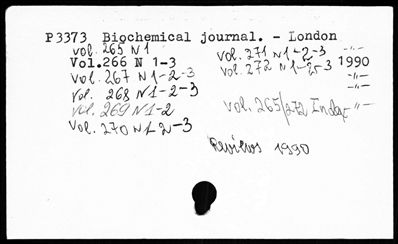 P3373 Biochemical journal. - London
vol. 265 N 1
Vol.266 N 1-3
vol. 267 N 1-2-3
vol. 268 N 1-2-3
vol. 269 N 1-2
Vol. 270 N 1-2-3
vol. 271 N 1-2-3 -"-
vol. 272 N 1-2-3 1990
-"-
vol. 265/272 Index -"-
Reviews 1990